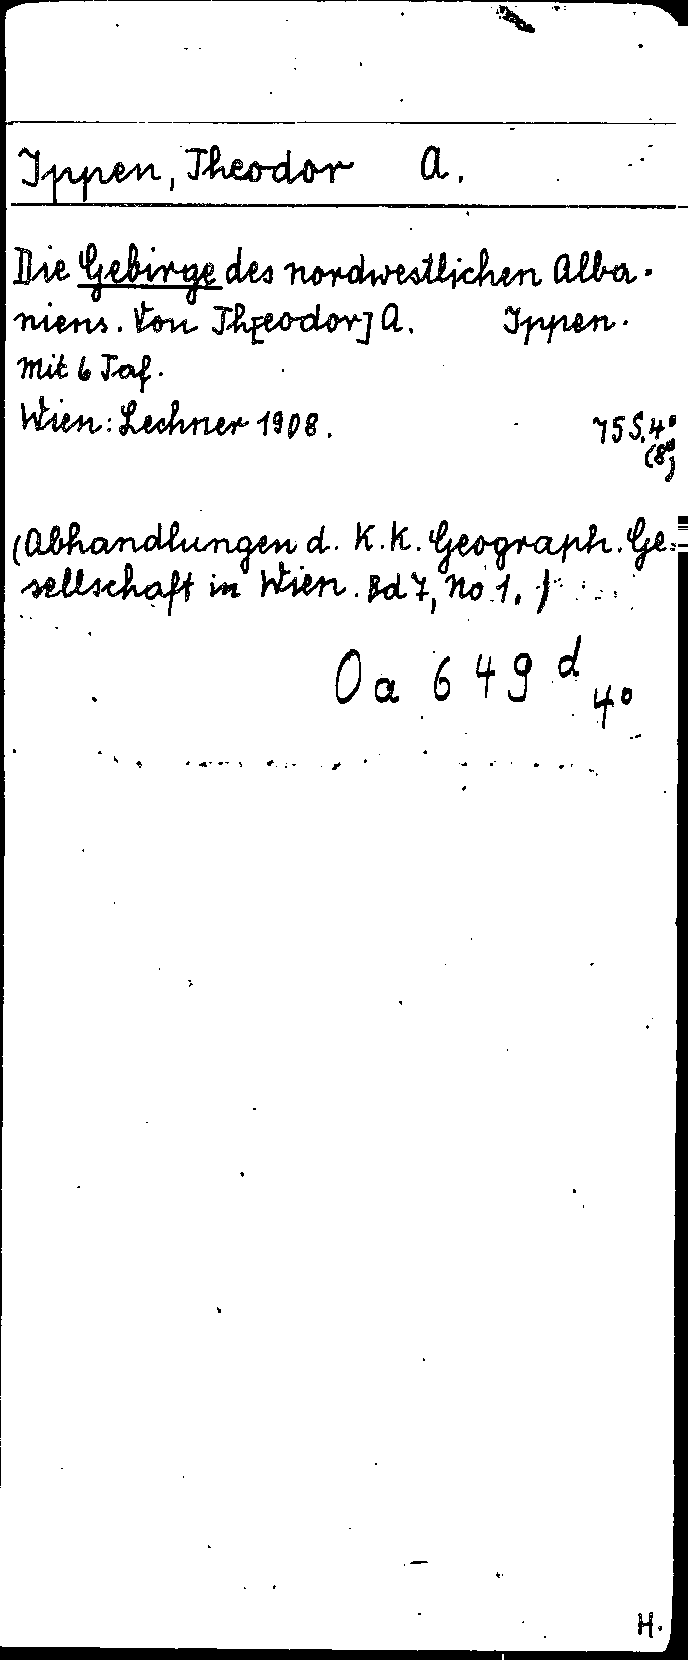 Ippen, Theodor A.
Die Gebirge des nordwestlichen Alba-
niens. Von Th[eodor] A. Ippen.
Mit 6 Taf.
Wien: Lechner 1908. 75 S. 4°
(8°)
(Abhandlungen d. K.K. Geograph. Ge-
sellschaft in Wien. Bd 7, No 1.)
Oa 649 d
4°
H.